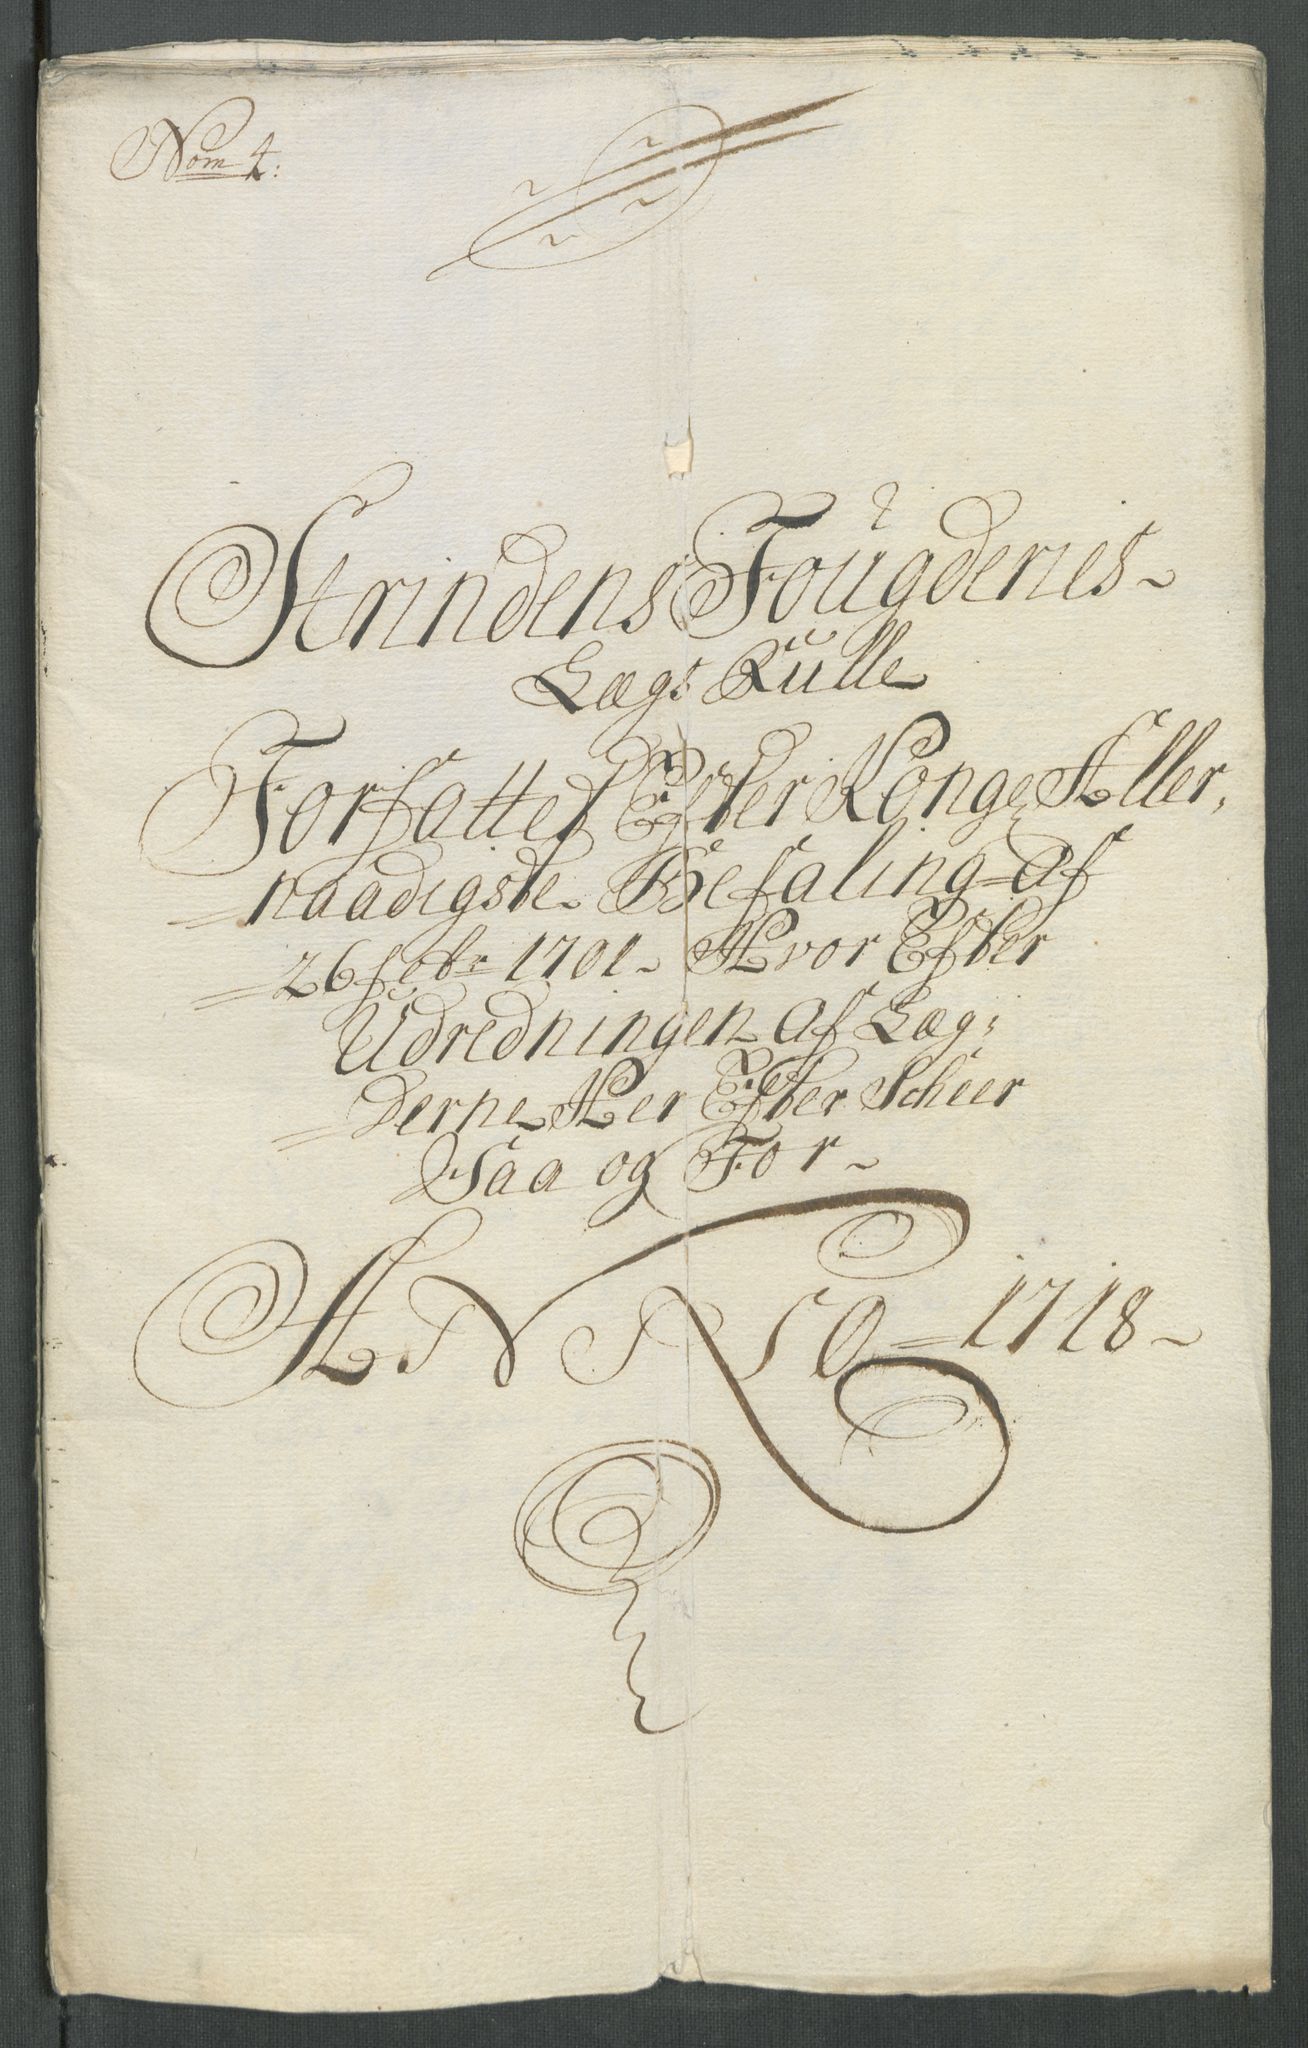 Nom 4:
Strindens Foügderies
Lægs Rülle
Forfattet Efter Konge Aller,
naadigste Befaling af
26 febr 1701 Hvor Efter
Üdredningen af Læg,
derne Her Efter Scheer
Saa og For
ANNO 1718